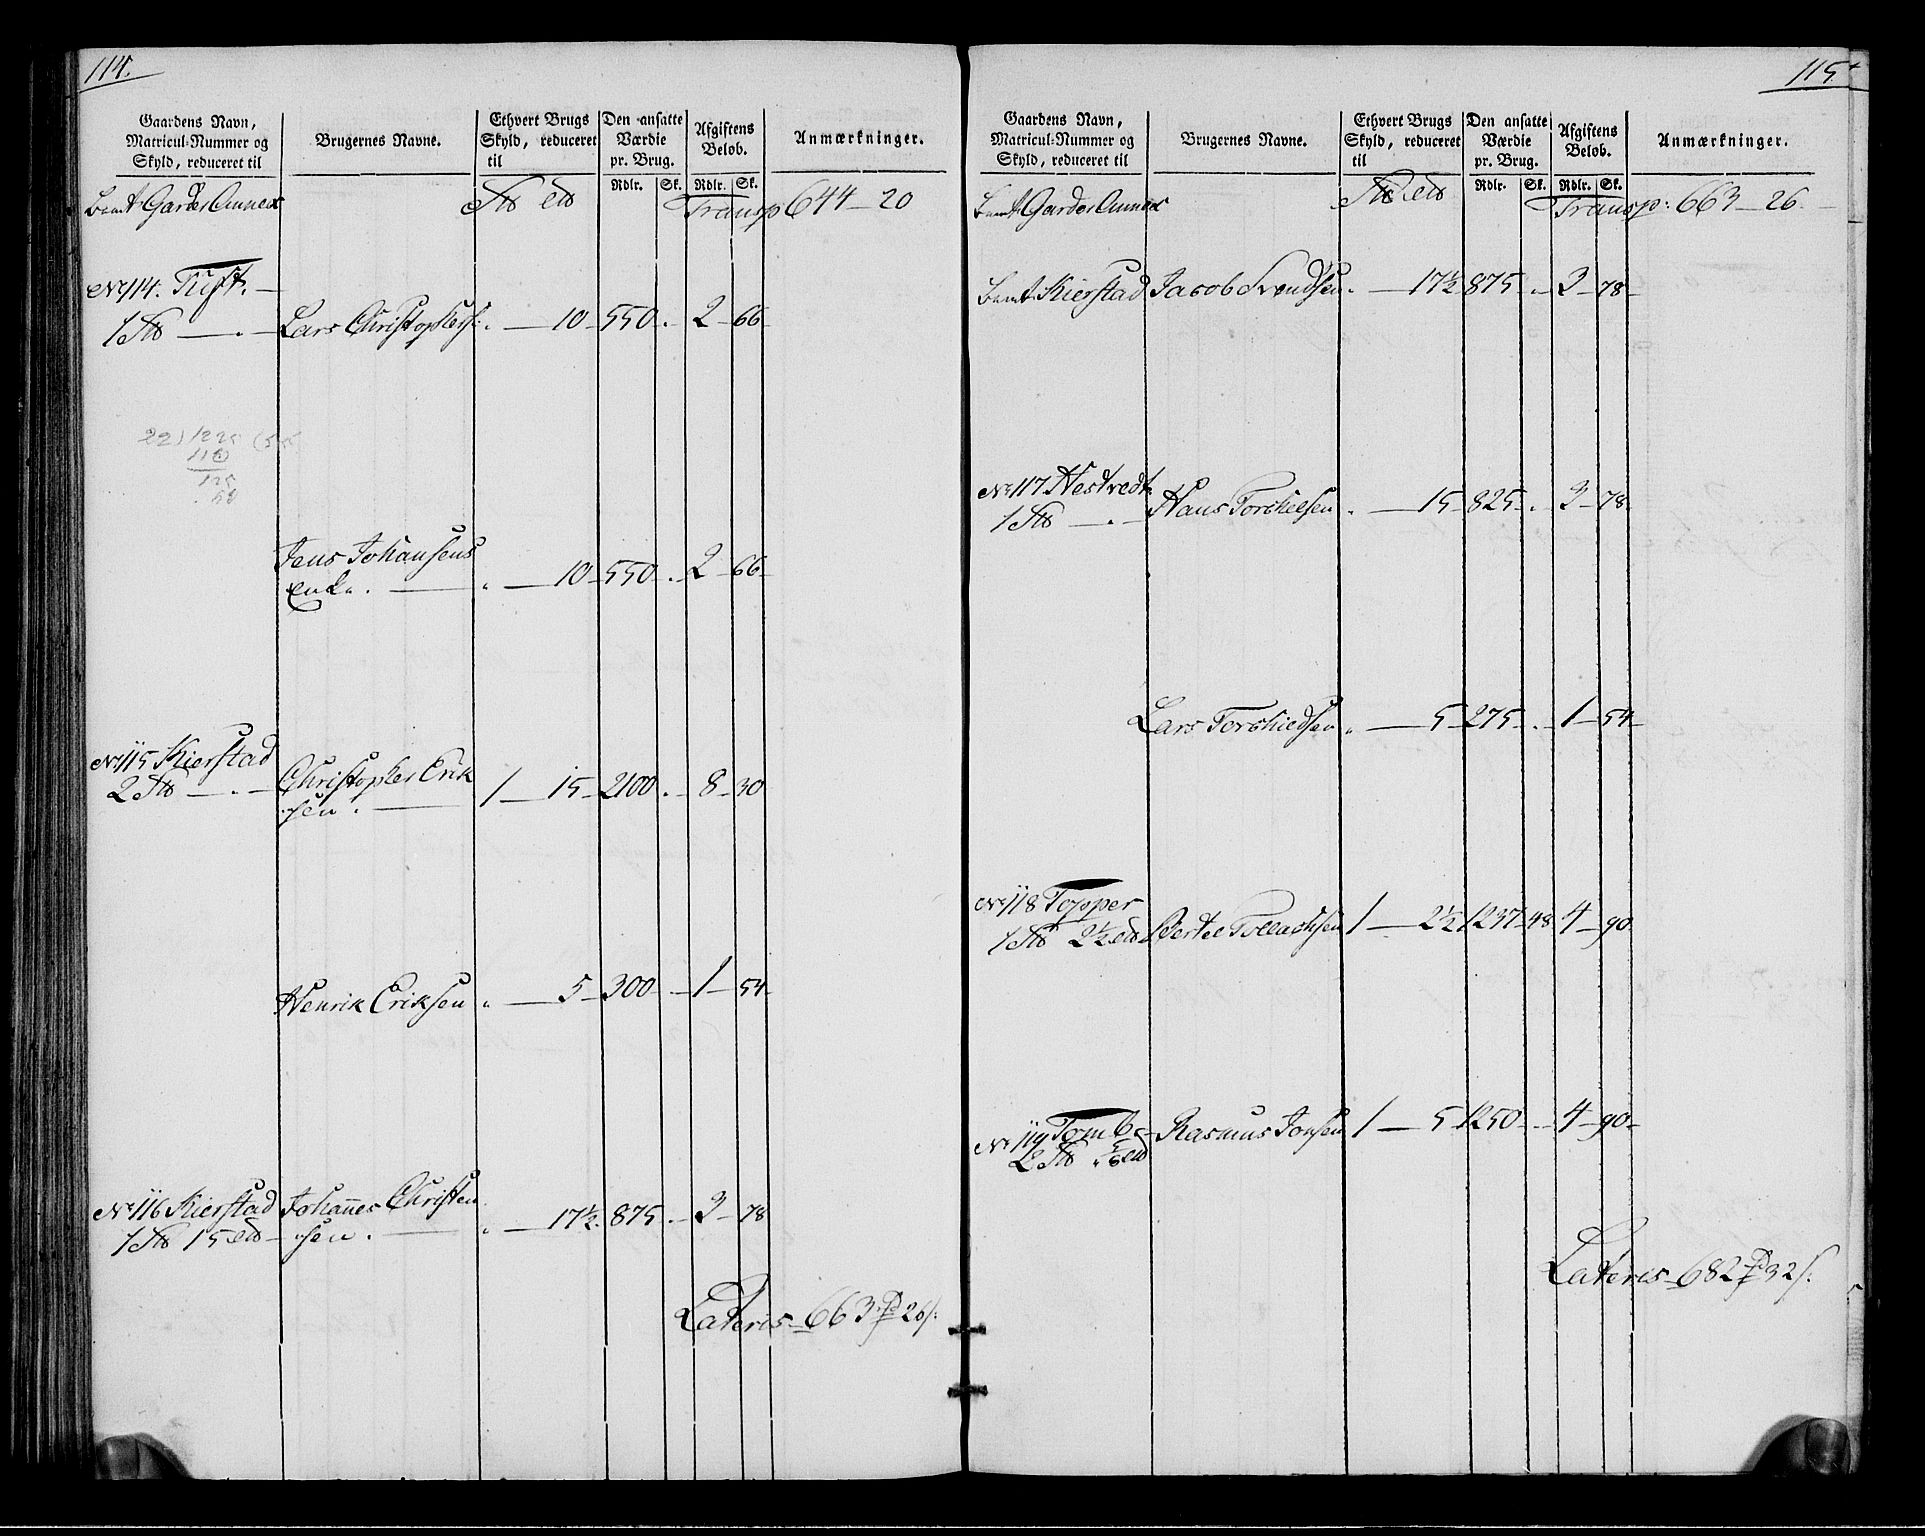 114.
Gaardens Navn, Matricul-Nummer og Skyld, reduceret til
Brugernes Navne.
Ethvert Brugs Skyld, reduceret til
Den ansatte Værdie pr. Brug.
Afgiftens Beløb.
Anmærkninger.
Rdlr. Sk. Rdlr. Sk.
Garder Annex Transp 644 - 20
No 114. Tuft.
1 Lars Christophers: " - 10 - 550 . 2 - 66
22) 1225 (55
110
125
Jens Johansens
Enke. " - 10 - 550 . 2 - 66
No 115 Kierstad
2 Christopher Erik
sen. 1 - 15 - 2100 . 8 - 30
Henrik Eriksen " - 5 - 300 - 1 - 54
No 116 Kierstad Johannes Christen
1 15 sen. " - 17½ . 875 . 3 - 78
Lateris - 663 26
115
Gaardens Navn, Matricul-Nummer og Skyld, reduceret til
Brugernes Navne.
Ethvert Brugs Skyld, reduceret til
Den ansatte Værdie pr. Brug.
Afgiftens Beløb.
Anmærkninger.
Rdlr. Sk. Rdlr. Sk.
Garder Annex Transp: 663 - 26
Kierstad Jacob Svendsen . - 17½ 875 . 3 - 78
No 117 Hestvedt
1 Hans Torchelsen . - 15 - 825 . 3 - 78
Lars Torchieldsen " - 5 - 275 . 1 - 54
No 118 Topper
1 2½ Bertel Tollachsen 1 - 2½ 1237 - 48 4 - 90
No 119 Tomb Rasmus Jonsen 1 - 5 1250 - 4 - 90
2
Lateris - 682 32